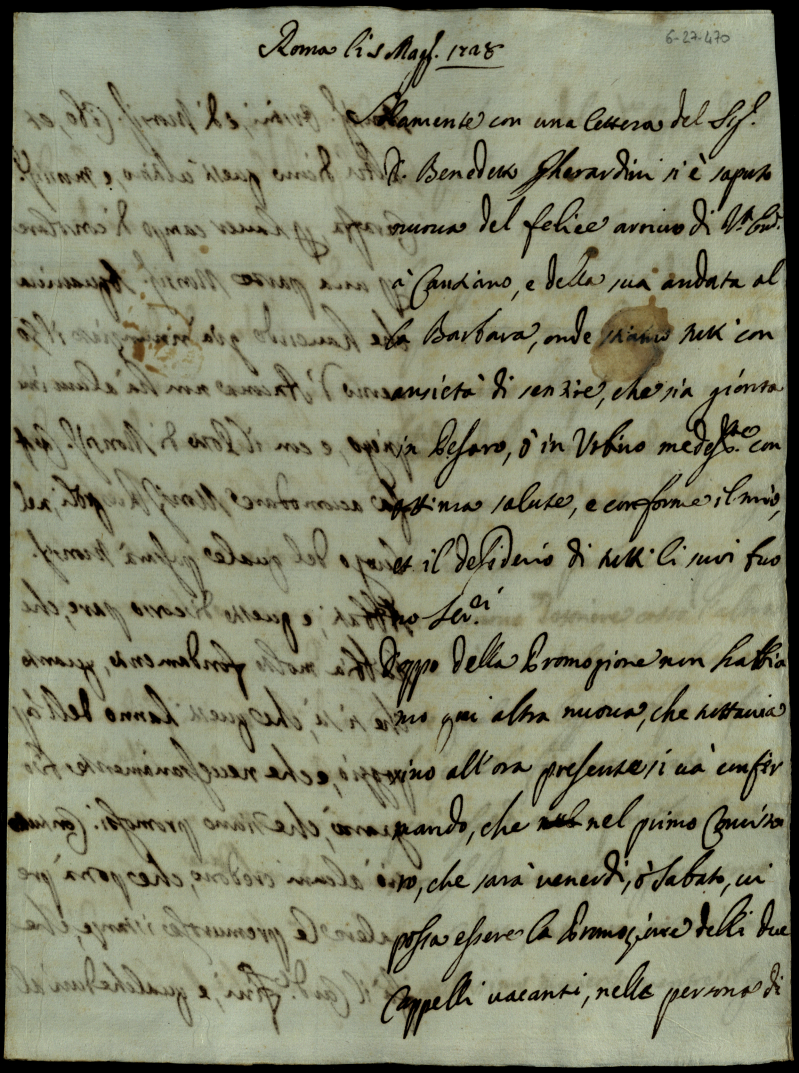 6-27-470
Roma li 5 Magg. 1728
Solamente con una lettera del Sig.
D. Benedetto Gherardini si è saputo
nuova del felice arrivo di V. Em.
à Canziano, e della sua andata al
la Barbara, onde stiamo tutti con
ansietà di sentire, che sia gionta
in Pesaro, ò in Urbino medes. con
ottima salute, e conforme il mio,
et il desiderio di tutti li suoi
Ser.ri
Doppo della Promozione non habbia
mo qui altra nuova, che tuttavia
sino all'ora presente si và confir
mando, che nel primo Concisto
ro, che sarà venerdì, ò Sabato, vi
possa essere la Promozione delli due
Cappelli vacanti, nelle persona di